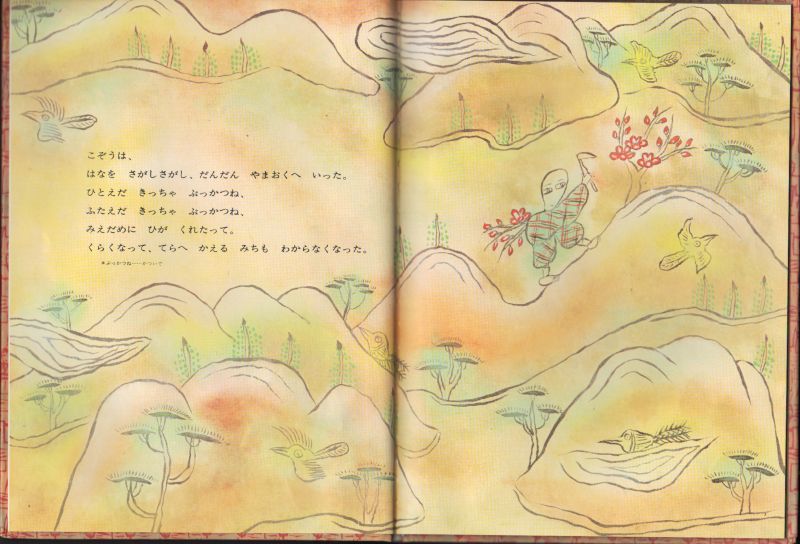 こぞうは、
はなを　さがしさがし、だんだん　やまおくへ　いった。
ひとえだ　きっちゃ　ぶっかつね、
ふたえだ　きっちゃ　ぶっかつね、
みえだめに　ひが　くれたって。
くらくなって、てらへ　かえる　みちも　わからなくなった。
＊ぶっかつね……かついで